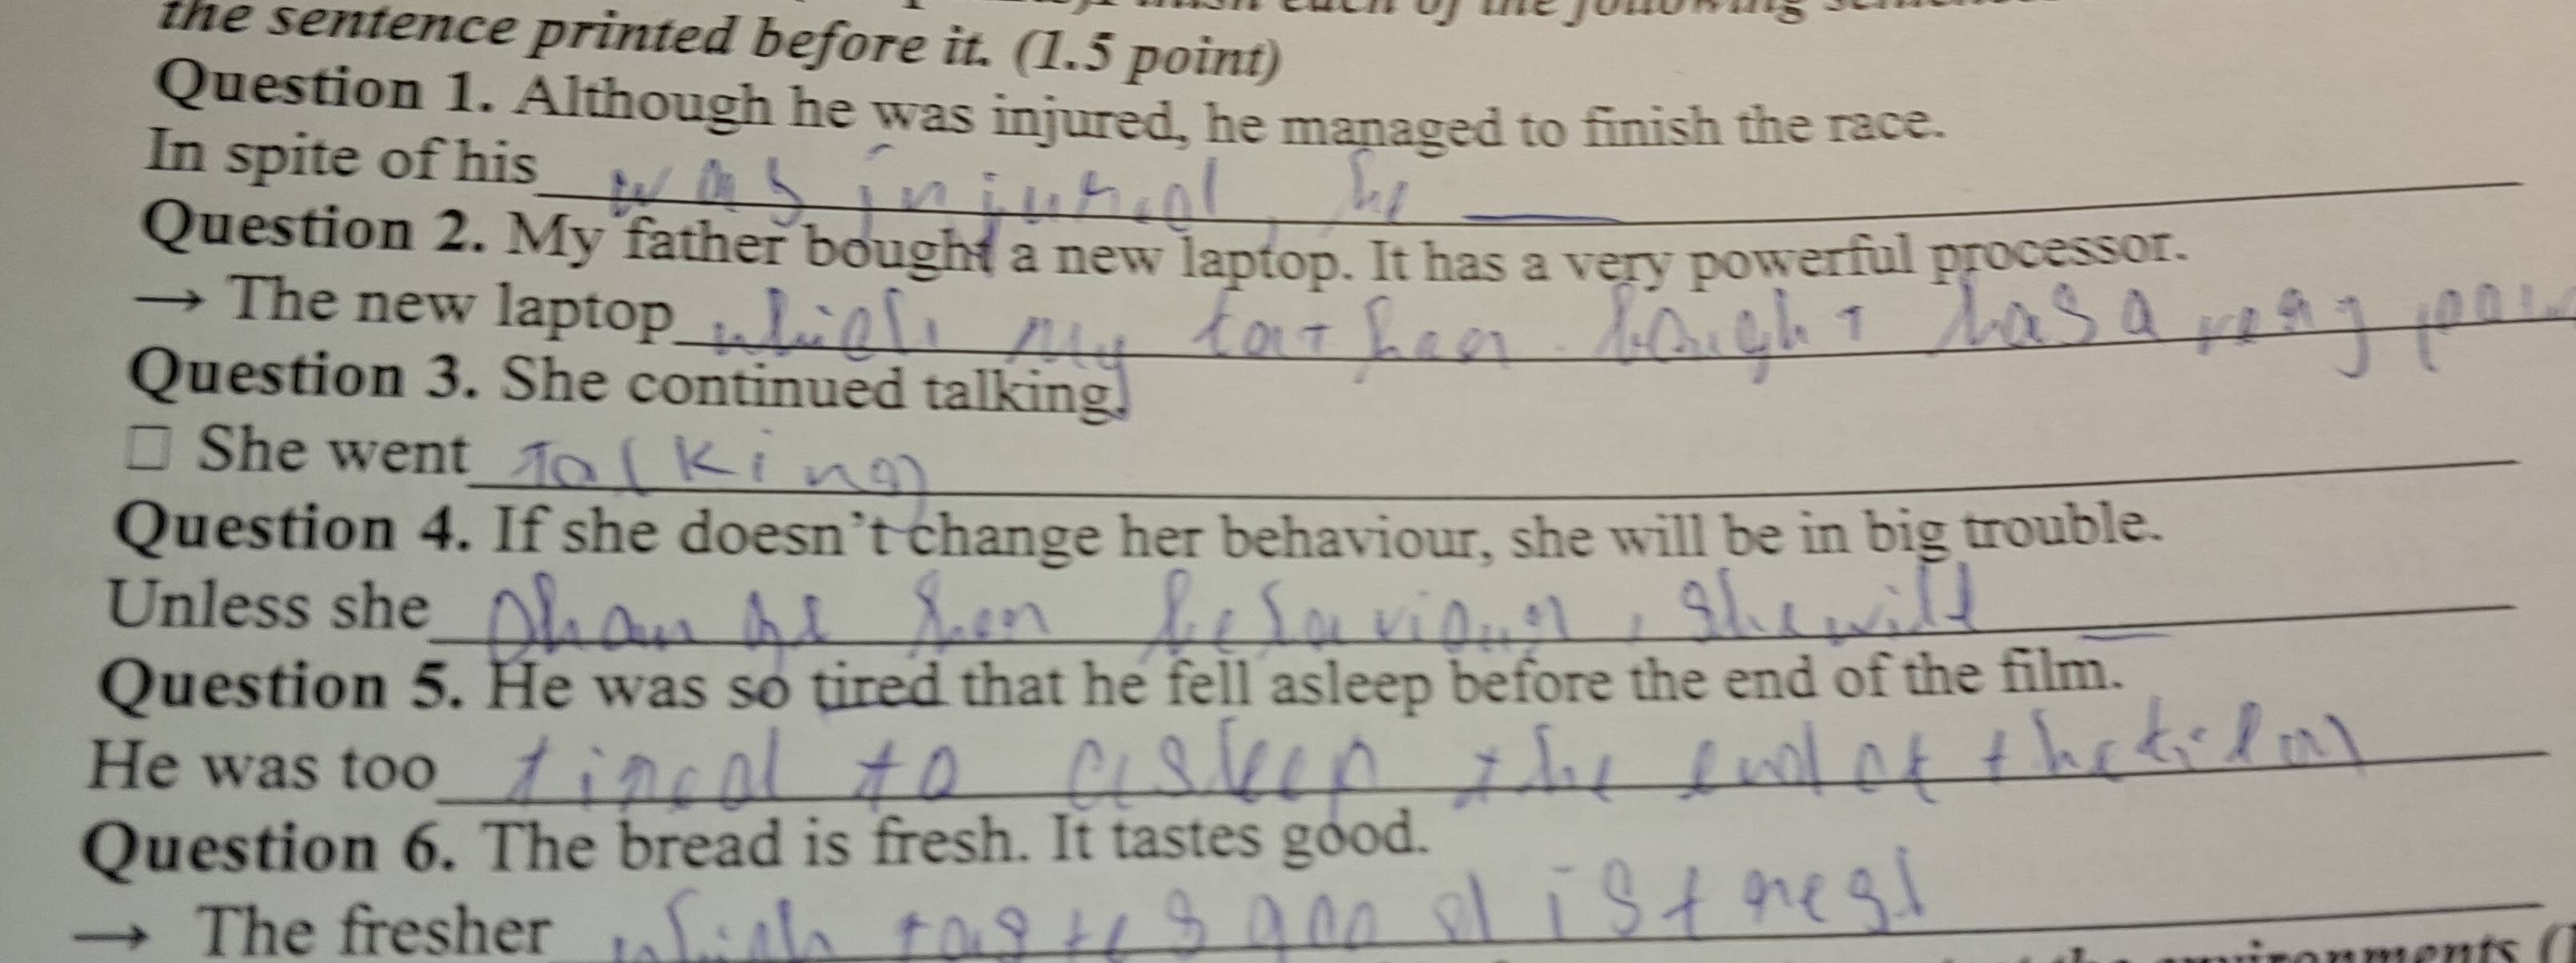 the sentence printed before it. (1.5 point)
Question 1. Although he was injured, he managed to finish the race.
In spite of his was injured, he
Question 2. My father bought a new laptop. It has a very powerful processor.
→ The new laptop which my father bought has a very
Question 3. She continued talking.
□ She went talking
Question 4. If she doesn't change her behaviour, she will be in big trouble.
Unless she change her behaviour, she will
Question 5. He was so tired that he fell asleep before the end of the film.
He was too tired to asleep the end of the film
Question 6. The bread is fresh. It tastes good.
→ The fresher which tastes good is